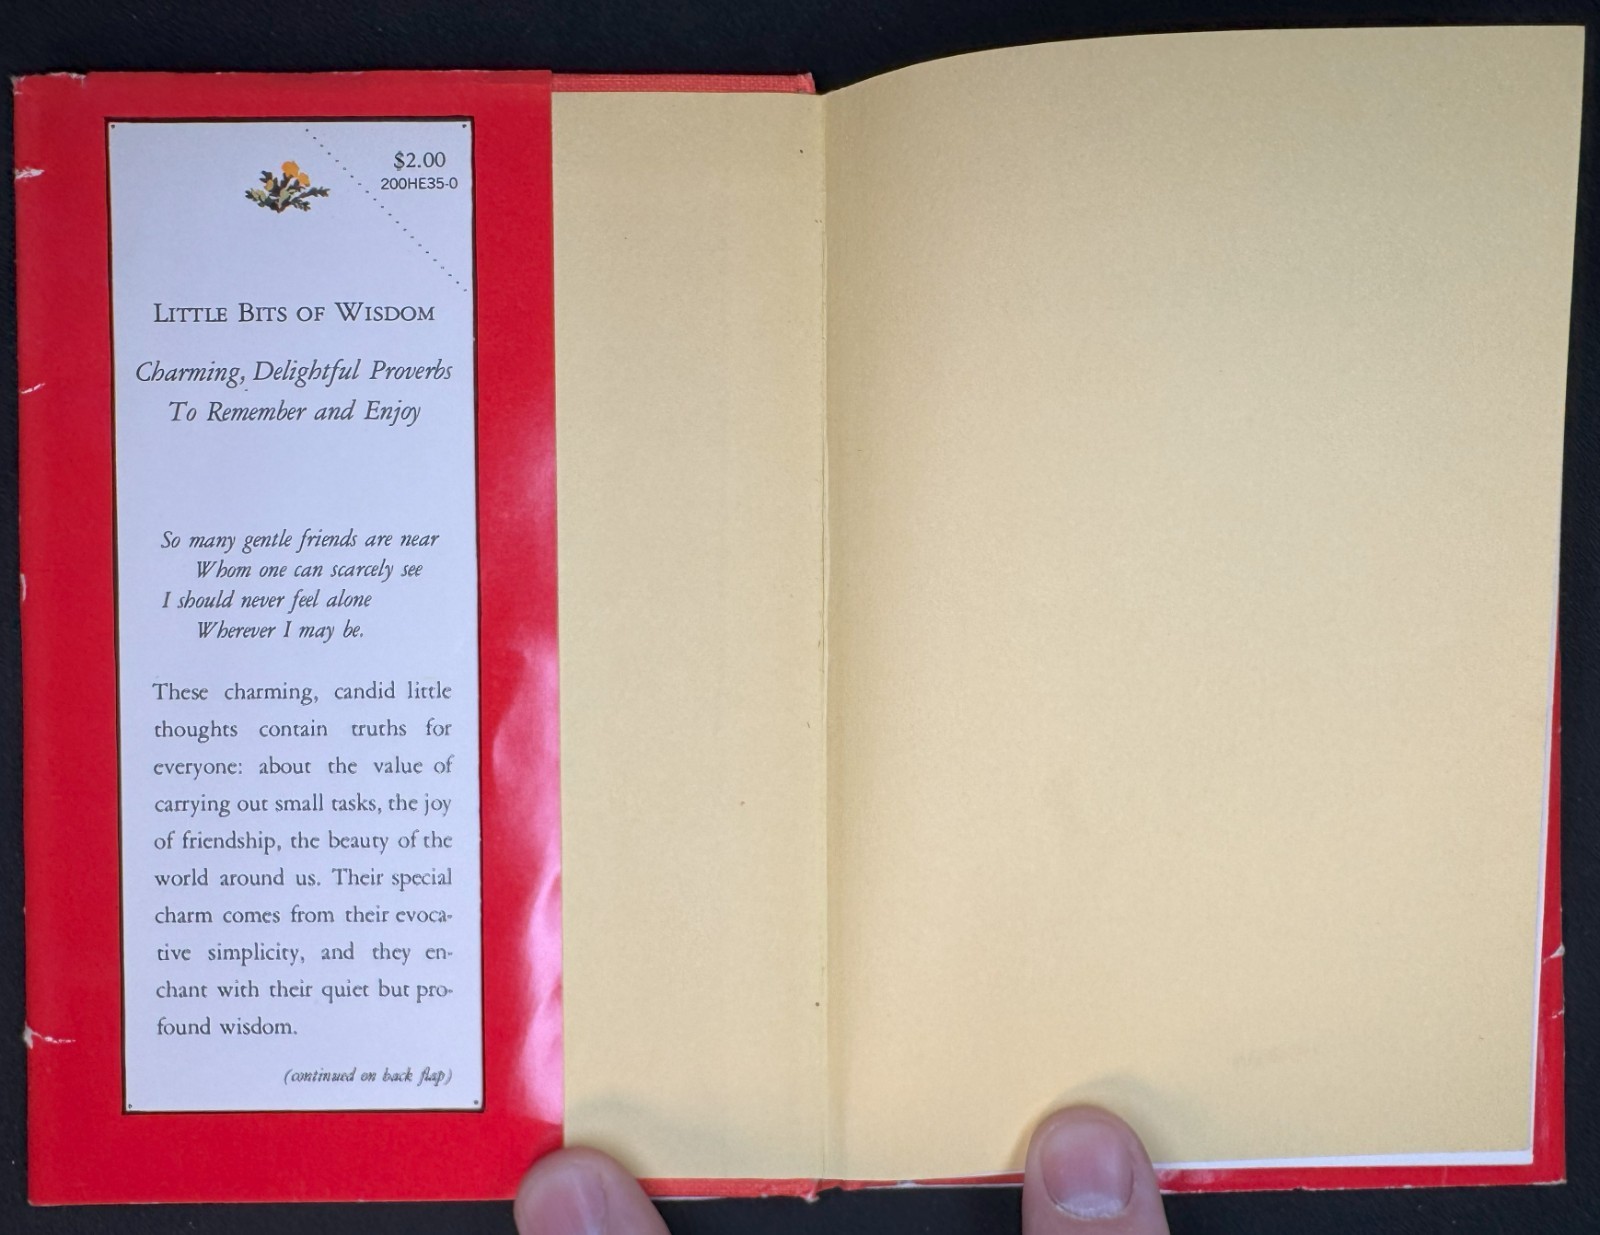 $2.00
200HE35-0
LITTLE BITS OF WISDOM
Charming, Delightful Proverbs
To Remember and Enjoy
So many gentle friends are near
Whom one can scarcely see
I should never feel alone
Wherever I may be.
These charming, candid little
thoughts contain truths for
everyone: about the value of
carrying out small tasks, the joy
of friendship, the beauty of the
world around us. Their special
charm comes from their evoca-
tive simplicity, and they en-
chant with their quiet but pro-
found wisdom.
(continued on back flap)